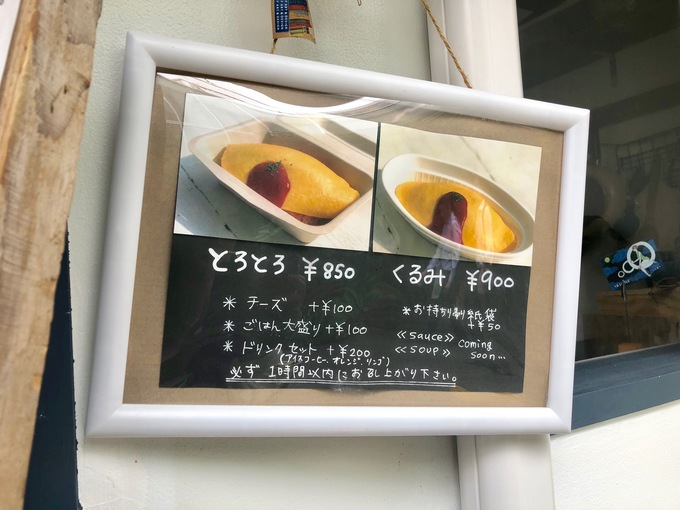 とろとろ ¥850
* チーズ +¥100
* ごはん大盛り +¥100
* ドリンクセット +¥200
(アイスコーヒー、オレンジ、リンゴ)
くるみ ¥900
* お持ち帰り紙袋
+¥50
≪sauce≫
≪SOUP≫
coming
soon...
必ず 1時間以内にお召し上がり下さい。